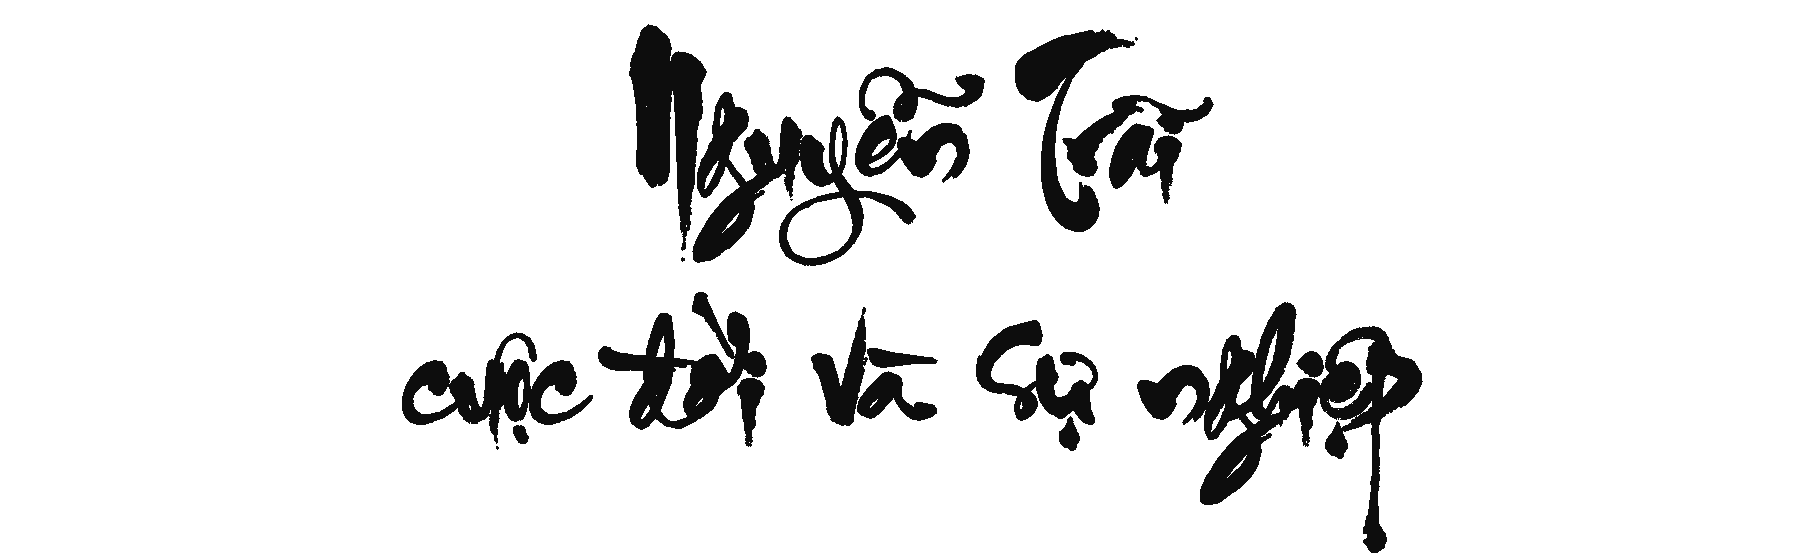 Nguyễn Trãi
cuộc đời và sự nghiệp